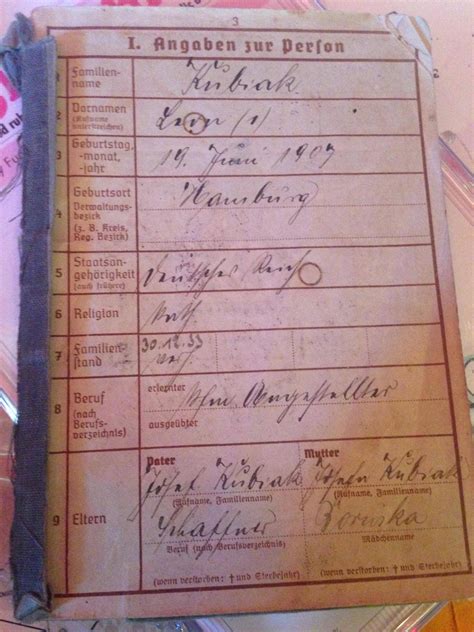 3
I. Angaben zur Person
1 Familien-
name
Kubiak
2 Vornamen
(Rufname
unterstreichen)
Leon (1)
3 Geburtstag,
-monat,
-jahr
19. Juni 1907
4 Geburtsort
Verwaltungs-
bezick
(z. B. Kreis,
Reg. Bezirk)
Hamburg
5 Staatsan-
gehörigkeit
(auch frühere)
Deutsches Reich
6 Religion
Kath.
7 Familien-
stand
30.12.33
verh.
8 Beruf
(nach
Berufs-
verzeichnis)
erlernter
Kfm. Angestellter
ausgeübter
9 Eltern
Vater
Mutter
Josef Kubiak
Josefa Kubiak
(Rufname, Familienname)
(Rufname, Familienname)
Schaffner
Beruf (nach Berufsverzeichnis)
Mädchenname
(wenn verstorben: † und Sterbejahr)
(wenn verstorben: † und Sterbejahr)